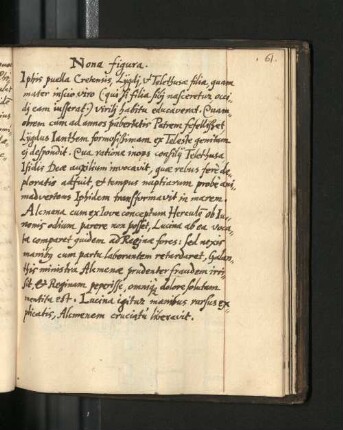 61.
Nona figura.
Iphis puella Cretensis, Lygdi, et Telethusæ filia, quam
mater inscio viro (qui si filia sibj nasceretur occi-
di eam iusserat) virili habitu educaverat. Quam
obrem cum ad annos pubertatis Patrem fefellisset
Lygdus Ianthem formosissimam ex Teleste genitam
ei despondit. Qua ratione inops consilij Telethusa
Isidis Deæ auxilium invocavit, quæ rebus ferè de-
ploratis adfuit, et tempus nuptiarum probe ani-
madvertens Iphidem transformavit in marem.
Alcmena cum ex Iove conceptum Herculē ob Iu-
nonis odium parere non posset, Lucina ab ea voca-
ta comparet quidem ad Regiæ fores: sed nexis
manibus cum partu laborantem retardaret, Galan-
this ministra Alcmenæ prudenter fraudem irri-
sit, & Reginam peperisse, omniq dolore solutam
mentita est. Lucina igitur manibus rursus ex-
plicatis, Alcmenem cruciatu liberavit.